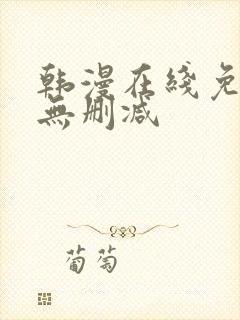 韩漫在线免
無删减
葡萄